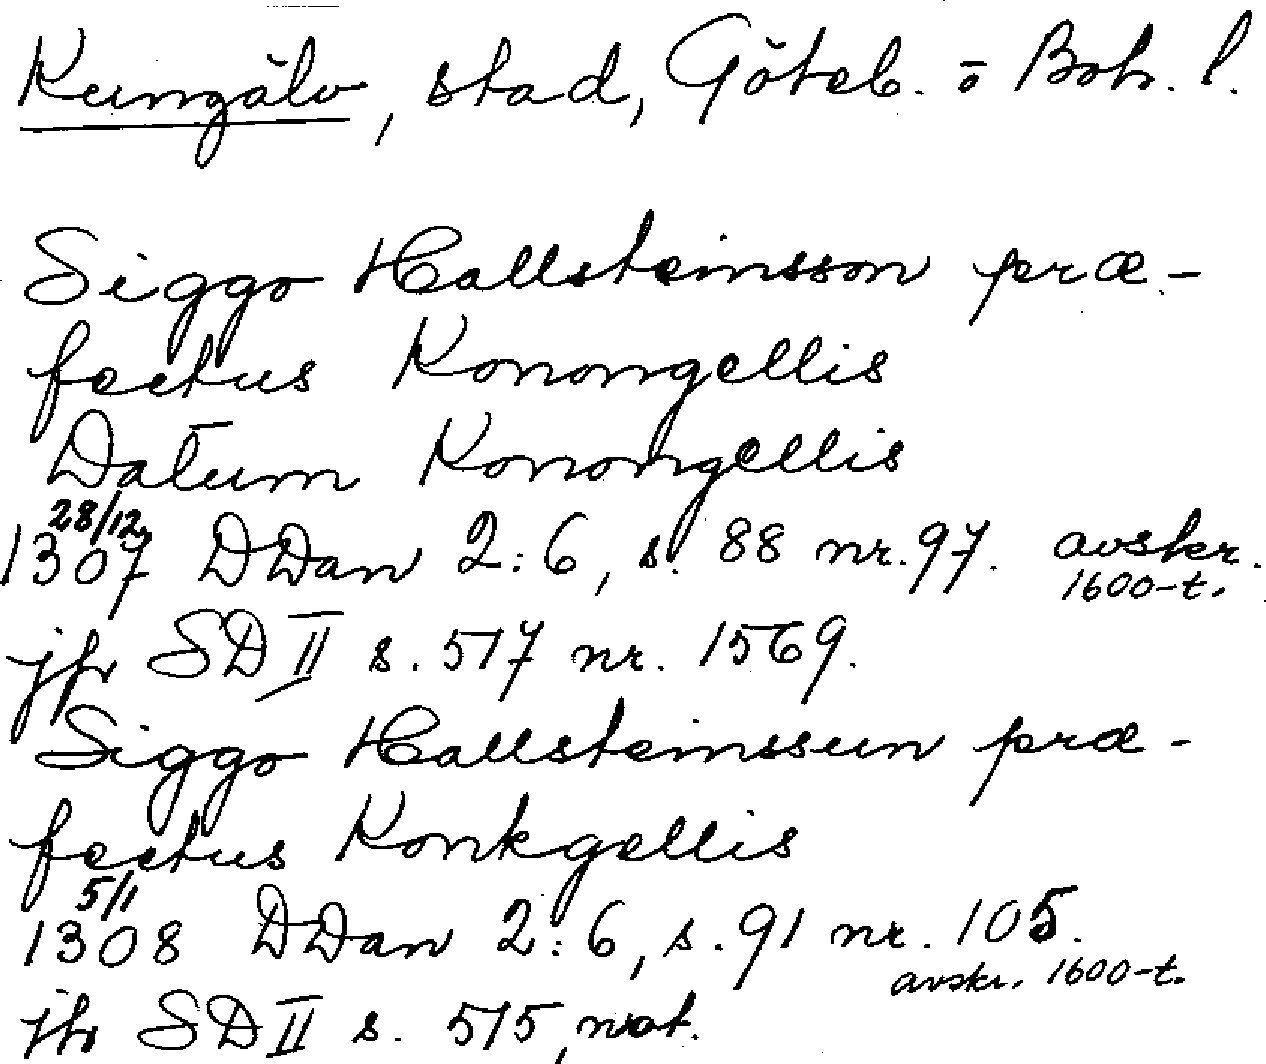 Kungälv, stad, Göteb. o Boh. l.
Siggo Hallsteinsson præ-
fectus Konongellis
Datum Konongellis
28/12
1307 DDan 2:6, s. 88 nr. 97. avskr.
1600-t.
jfr SD II s. 517 nr. 1569.
Siggo Hallsteinssun præ-
fectus Konkgellis
5/1
1308 DDan 2:6, s. 91 nr. 105.
avskr. 1600-t.
jfr SD II s. 515, not.